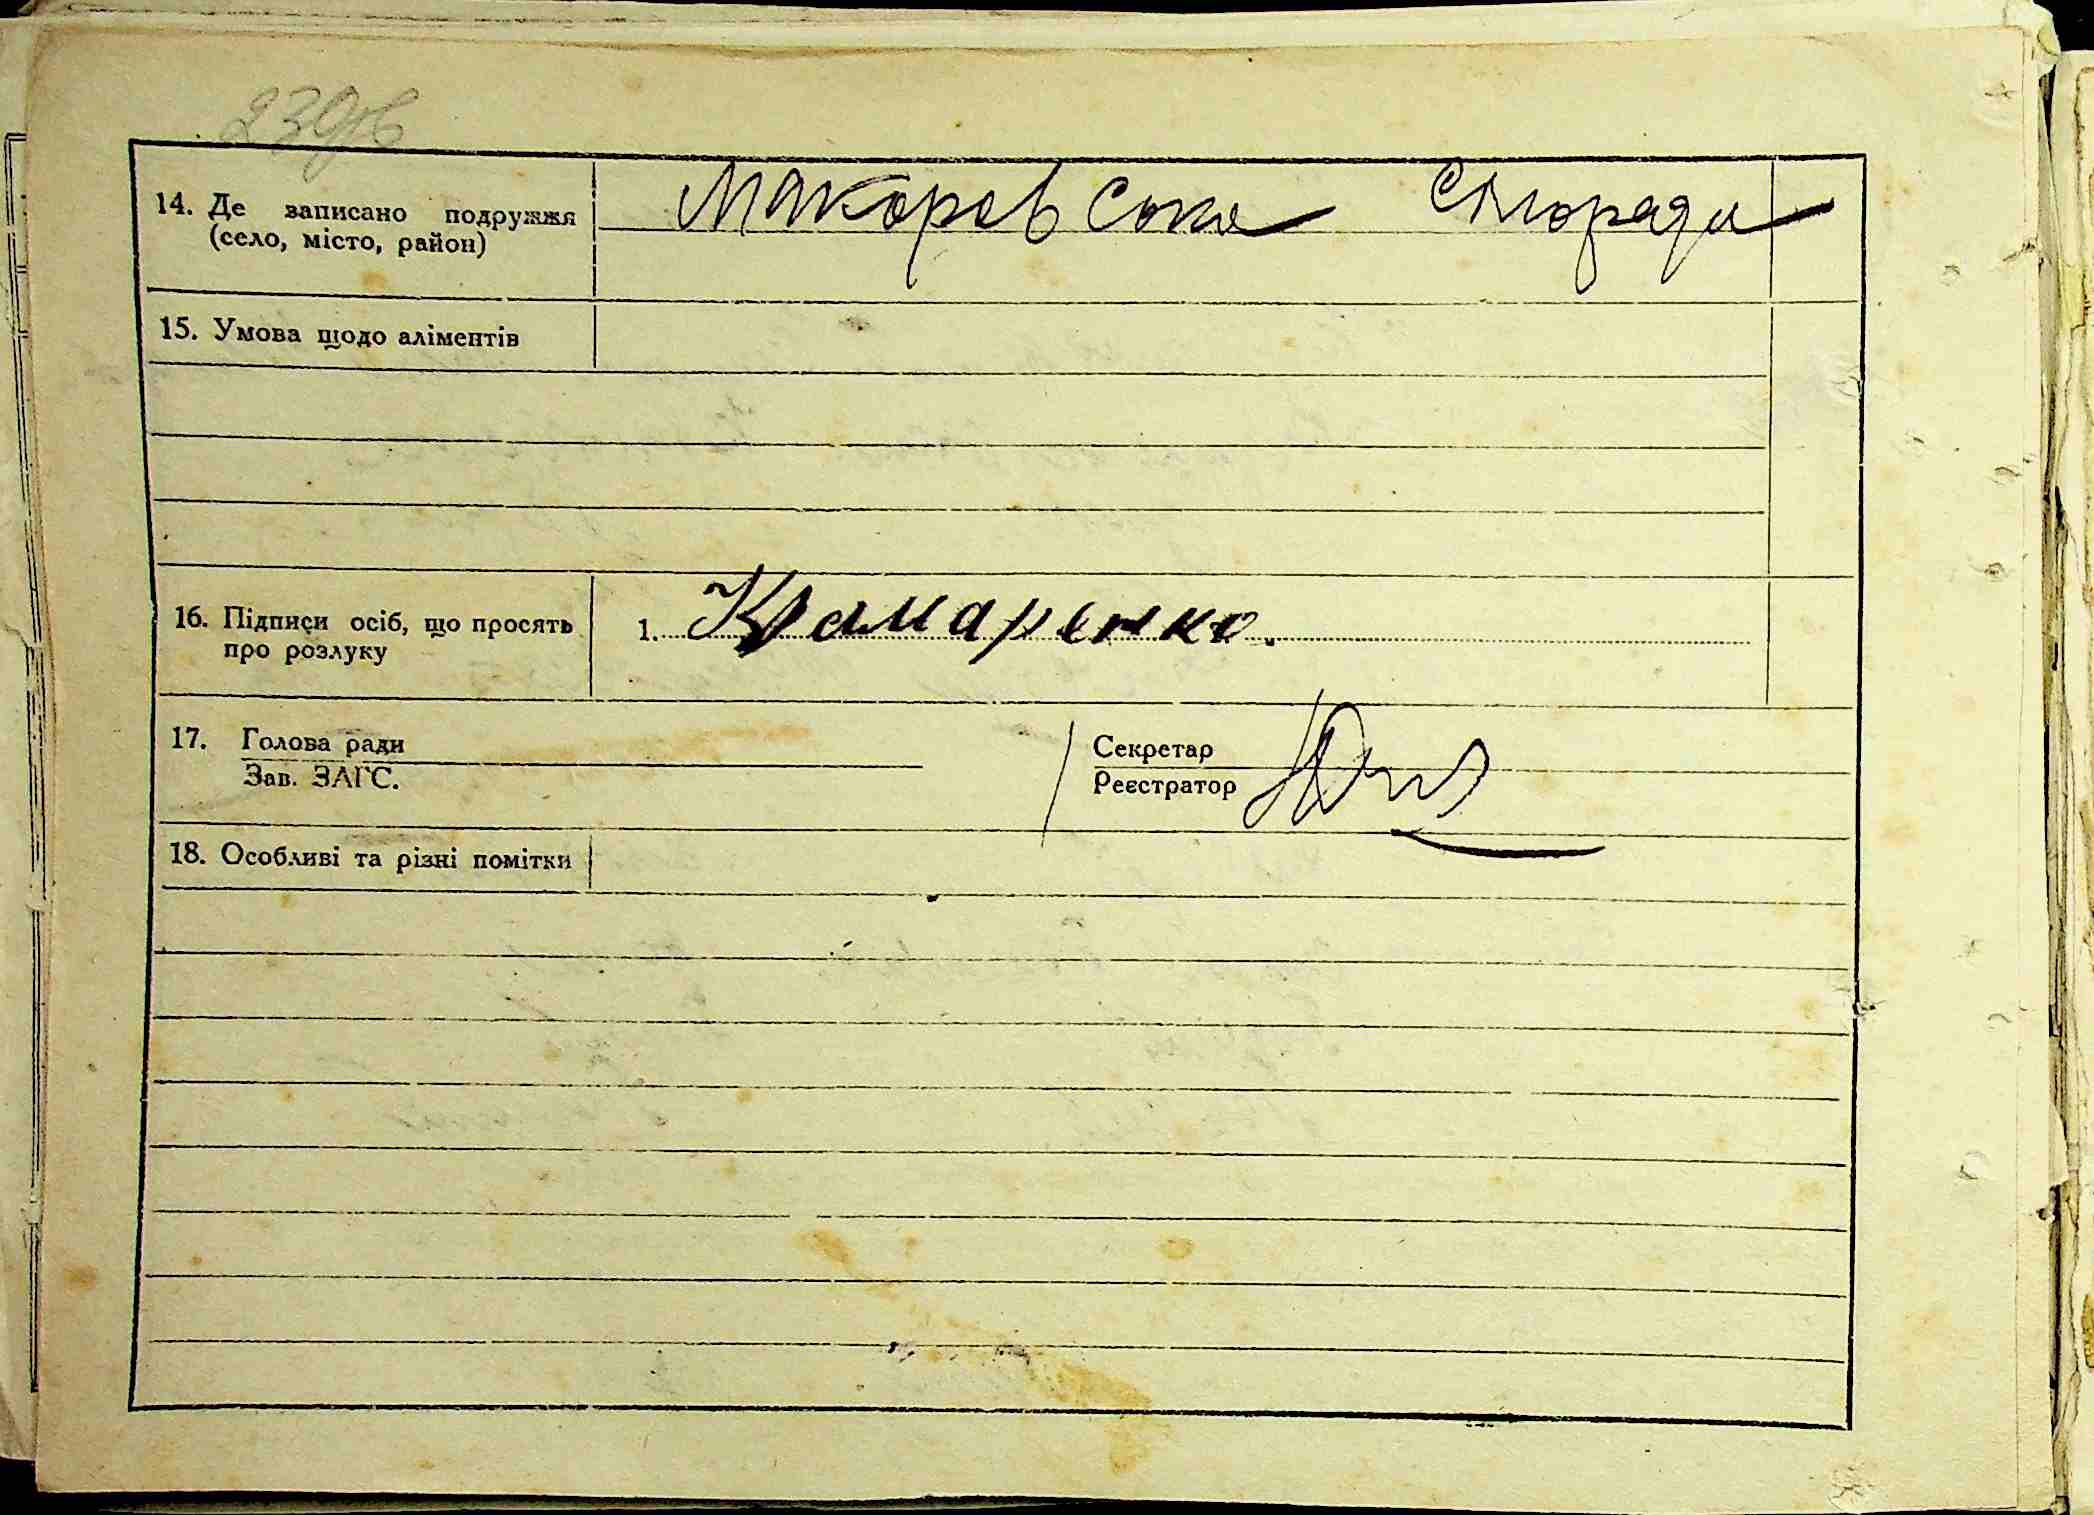 14. Де записано подружжя
(село, місто, район)
Макоровська сільради
15. Умова щодо аліментів
16. Підписи осіб, що просять
про розлуку
1. Крамаренко.
17. Голова ради
Зав. ЗАГС.
Секретар
Реєстратор
18. Особливі та різні помітки